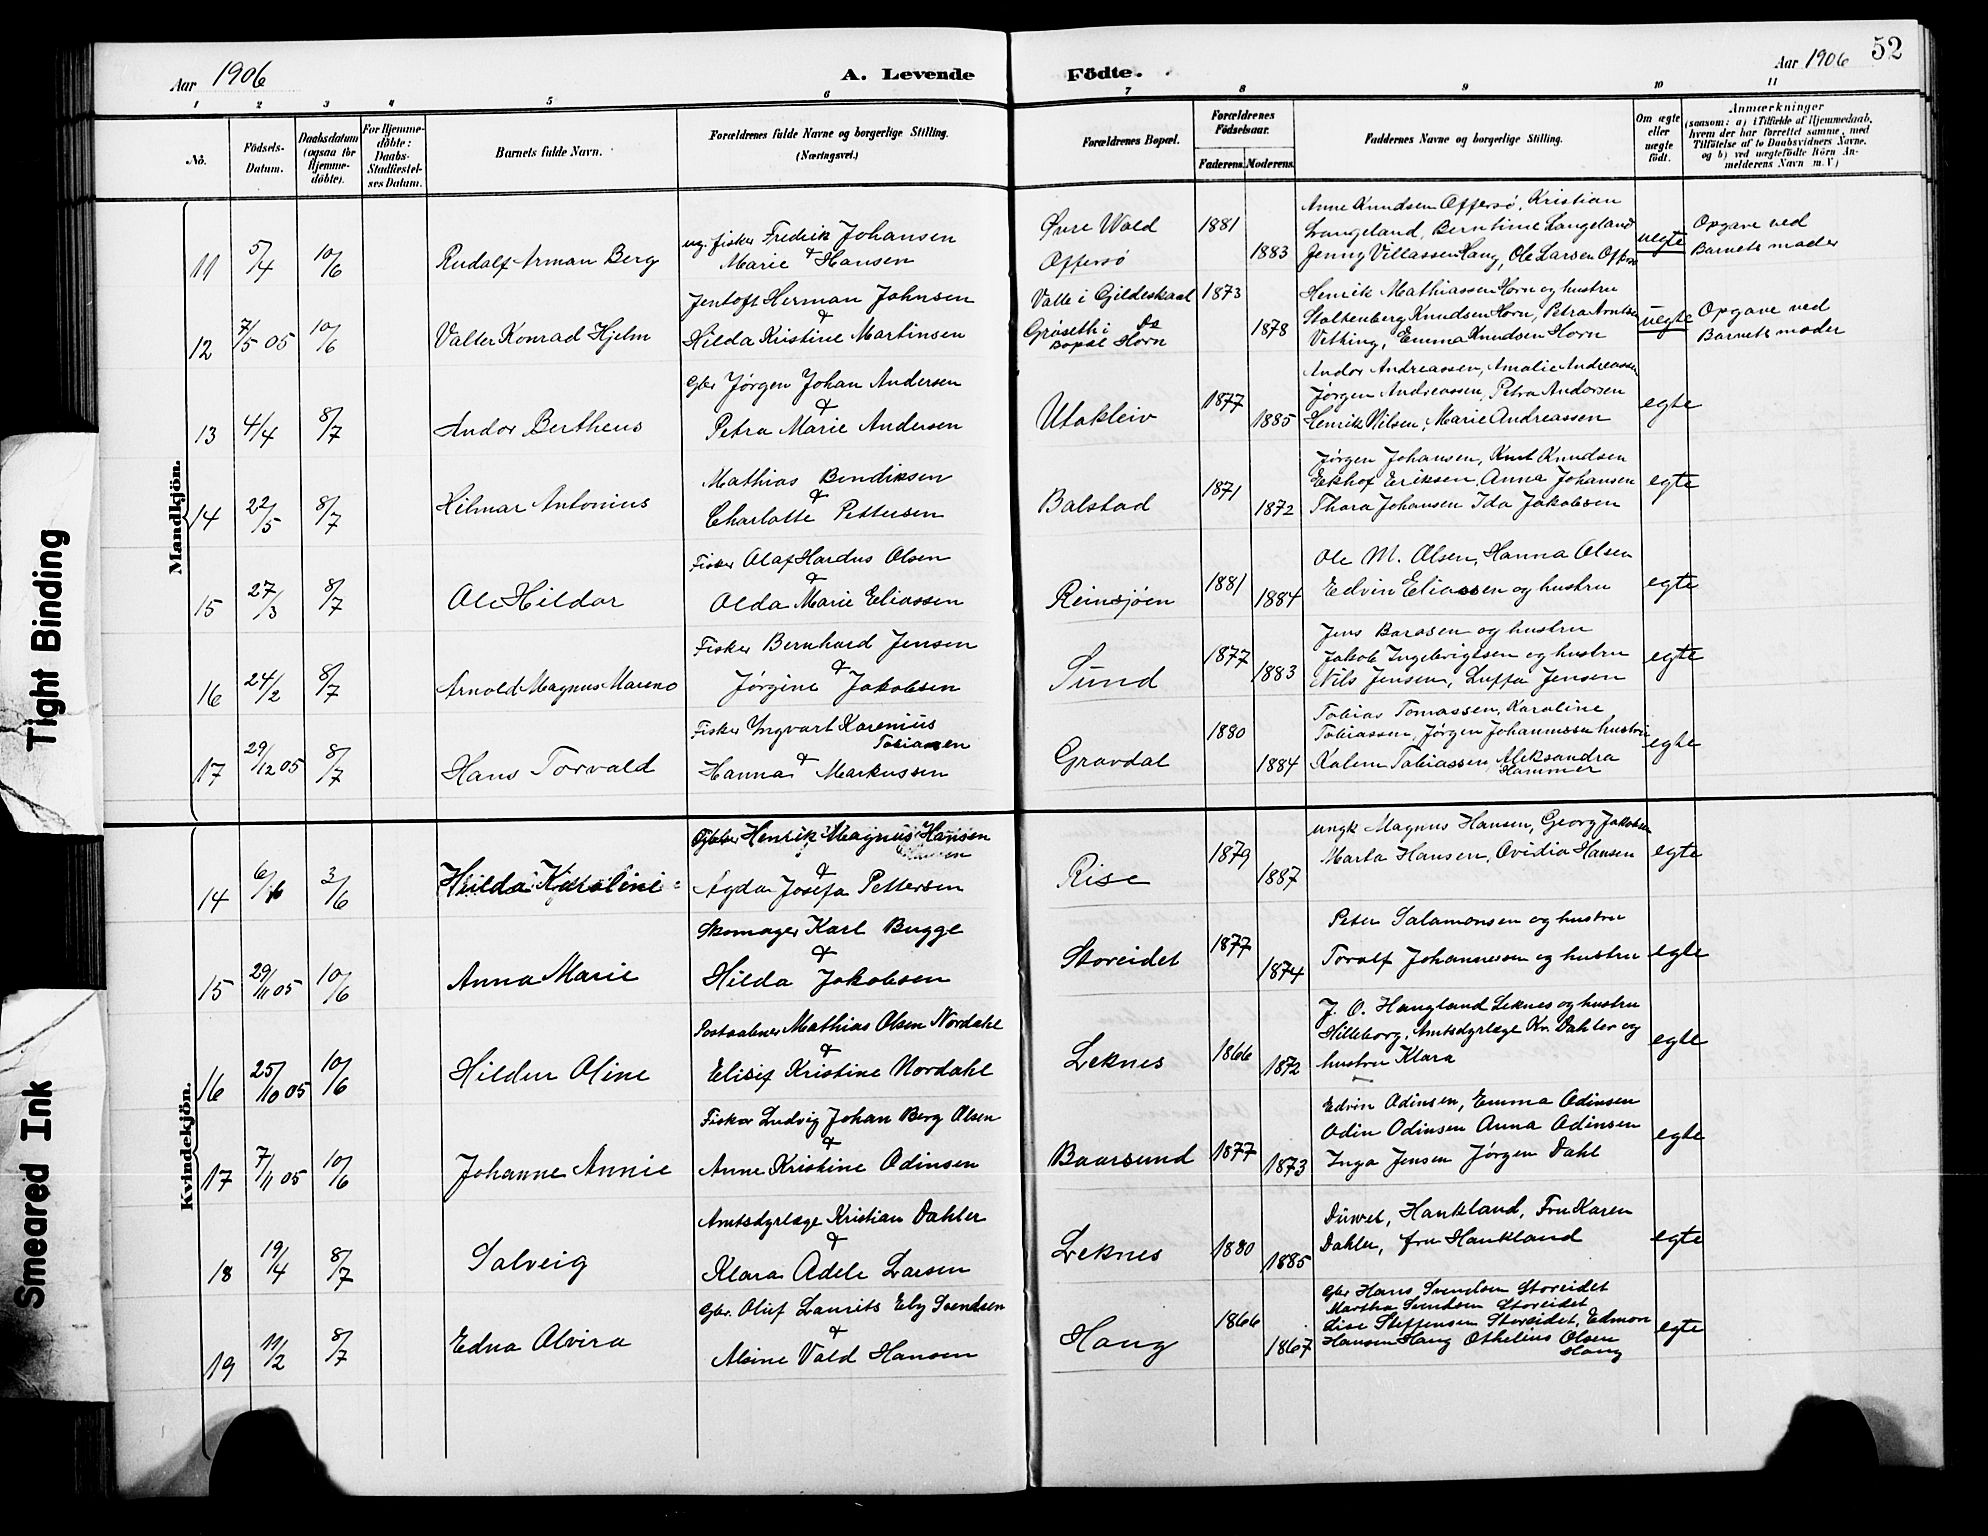 Aar 1906
A. Levende
Födte.
Aar 1906
52
1 2 3 4 5 6 7 8 9 10 11
No.
Födsels-
Datum.
Daabsdatum
(ogsaa for
Hjemme-
döbte).
For Hjemme-
döbte:
Daabs-
Stadfæstel-
ses Datum.
Barnets fulde Navn.
Forældrenes fulde Navne og borgerlige Stilling.
(Næringsvei.)
Forældrenes Bopæl.
Forældrenes
Födselsaar.
Faderens.
Moderens.
Faddernes Navne og borgerlige Stilling.
Om ægte
eller
uægte
födt.
Anmærkninger
(saasom: a) i Tilfælde af Hjemmedaab,
hvem der har forrettet samme, med
Tilföielse af to Daabsvidners Navne,
og b) ved uægtefödte Börn An-
melderens Navn m. V.)
Mandkjön.
11 5/4 10/6 Rudolf Arman Berg
ug. fisker Fredrik Johansen
&
Marie Hansen
Øvre Wold
Offersø
1881
1883
Anne Knudsen Offersø, Kristian
Langeland, Berntine Langeland
Jenny Villassen Haug, Ole Larsen Offersø
uegte
Opgave ved
Barnets moder
12 7/5 05 10/6 Valter Konrad Hjelm
Jentoft Herman Johnsen
&
Hilda Kristine Martinsen
Valle i Gildeskaal
Grøseth i Do
Bopæl Horn
1873
1878
Henrik Mathiassen Horn og hustru
Stoltenberg Knudsen Horn, Petra Arntsen
Vetting, Emma Knudsen Horn
uegte
Opgave ved
Barnets moder
13 4/4 8/7 Andor Bertheus
Gbr Jørgen Johan Andersen
&
Petra Marie Andersen
Utakleiv
1877
1885
Andor Andreassen, Amalie Andreassen
Jørgen Andreassen, Petra Andorsen
Henrik Nilsen, Marie Andreassen
egte
14 22/5 8/7 Hilmar Antonius
Mathias Bendiksen
&
Charlotte Pettersen
Balstad
1871
1872
Jørgen Johansen, Knut Knudsen
Ekhof Eriksen, Anna Johansen
Thora Johansen Ida Jakobsen
egte
15 27/3 8/7 Ole Hildor
Fisker Olaf Hardus Olsen
&
Olda Marie Eliassen
Reinsjøen
1881
1884
Ole M. Olsen, Hanna Olsen
Edvin Eliassen og hustru
egte
16 24/2 8/7 Arnold Magnus Mareno
Fisker Bernhard Jensen
&
Jørgine Jakobsen
Sund
1877
1883
Jens Barosen og hustru
Jakob Ingebrigtsen og hustru
Nils Jensen, Luffa Jensen
egte
17 29/12 05 8/7 Hans Torvald
Fisker Yngvart Karenius
Tobiassen
&
Hanna Markussen
Gravdal
1880
1884
Tobias Tomassen, Karoline
Tobiassen, Jørgen Johannessen hustru
Kalem Tobiassen, Aleksandra
Hammer
egte
Kvindekjön.
14 3/6 Hilda Karoline
Gbr Henrik Magnus Hansen
&
Agda Josefa Pettersen
Rise
1879
1887
ungk Magnus Hansen, Georg Jakobsen
Marta Hansen, Ovidia Hansen
egte
15 29/11 05 10/6 Anna Marie
Skomager Karl Bugge
&
Hilda Jakobsen
Storeidet
1877
1874
Peter Salamonsen og hustru
Toralf Johannessen og hustru
egte
16 25/10 05 10/6 Hildur Oline
Postaabner Mathias Olsen Nordahl
&
Elisif Kristine Nordahl
Leknes
1866
1872
J. O. Haugland Leknes og hustru
Hilleborg, Amtsdyrlæge Kr. Dahler og
hustru Klara
egte
17 7/11 05 10/6 Johanne Annie
Fisker Ludvig Johan Berg Olsen
&
Anne Kristine Odinsen
Baarsund
1877
1873
Edvin Odinsen, Emma Odinsen
Odin Odinsen Anna Odinsen
Inga Jensen Jørgen Dahl
egte
18 19/4 8/7 Solveig
Amtsdyrlæge Kristian Dahler
&
Klara Adele Larsen
Leknes
1880
1885
Hankland, Fru Karen
Dahler, fru Hankland
egte
19 11/2 8/7 Edna Alvira
Gbr. Oluf Laurits Eby Svendsen
&
Alsine Vold Hansen
Haug
1866
1867
Gbr Hans Svendsen Storeidet
Martha Svendsen Storeidet
Lise Steffensen Storeidet, Edmon
Hansen Haug Othelius Olsen
Haug
egte
Tight Binding
Smeared Ink